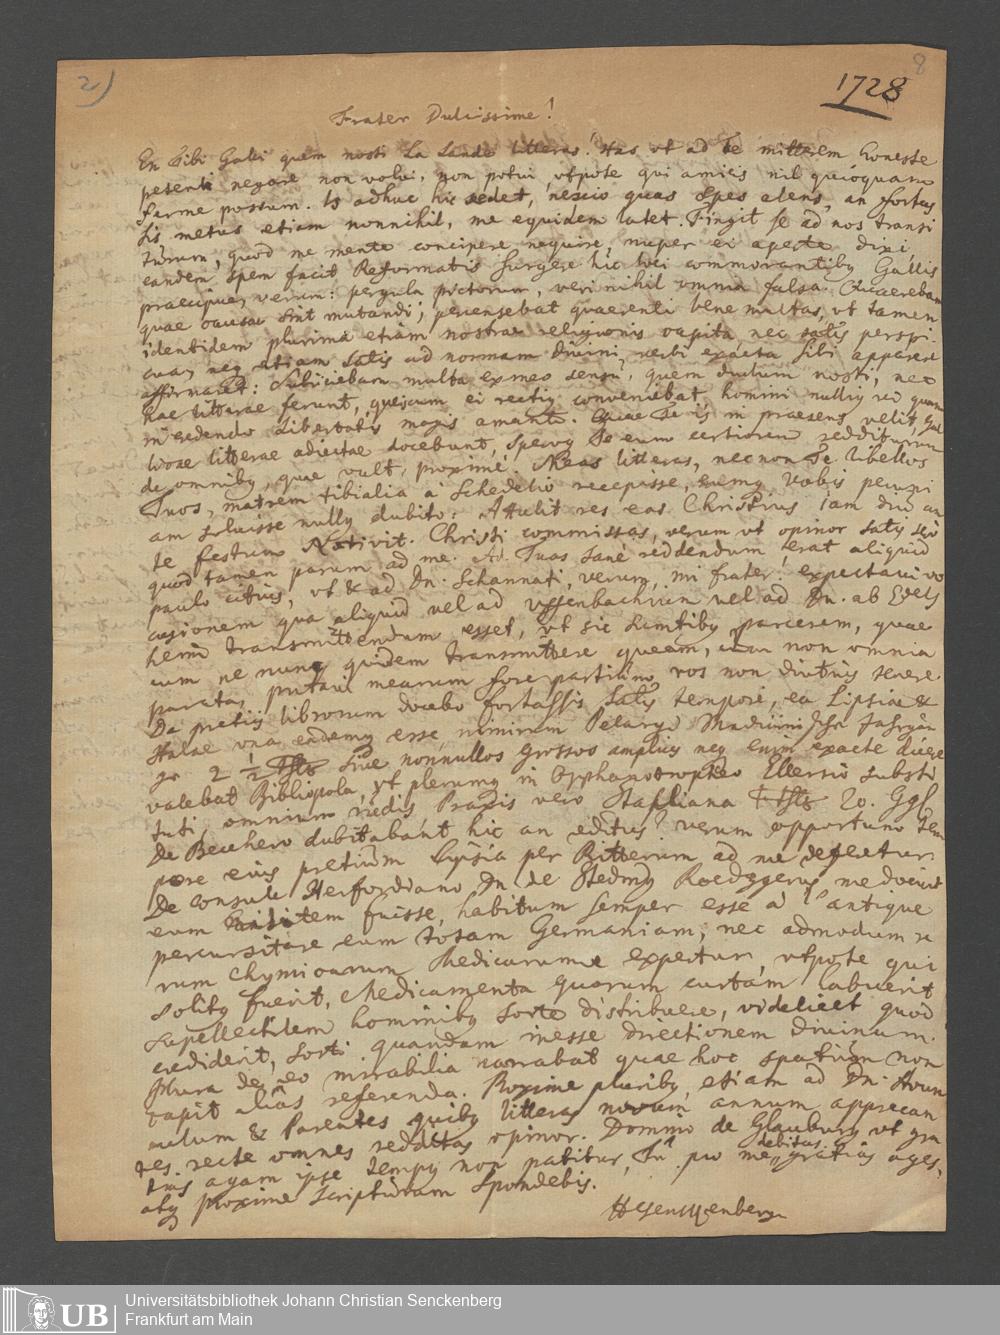 2)
8
1728
Frater Dulcissime!
En Tibi Galli quem nosti La Lande litteras! Has ut ad Te mitterem honeste
petenti negare non volui, non potui, utpote qui amicis nil quicquam
farme possum. Is adhuc hic sedet, nescio quas spes alens, an fortas
sis metus etiam nonnihil, me equidem latet. Fingit se ad nos transi
turum, quod me mente concipere nequire, nuper ei aperte dixi
eandem spem facit Reformatis surgere hic loci commorantibus Gallis
praecipue, verum: pergula pictorum, veri nihil omnia falsa. Quaerebam
quae causae sint mutandi; percensebat quaerenti bene multas, ut tamen
identidem plurima etiam nostrae religionis capita nec satis perspi
cua, neque etiam satis ad normam divini verbi exacta sibi apparere
affirmaret: Subiiciebam multa ex meo sensu, quem dudum nosti, nec
hae litterae ferunt, quicum ei rectius conveniebat, homini nullius rei quam
in credendo libertatis magis amante. Quae Te is in praesens velit, Gal
licae litterae adiectae docebunt, spero Te eum certiorem redditurum
de omnibus, quae vult, proxime. Meas litteras, nec non Te libellos
Tuos, matrem tibialia a Schedelio recepisse, eumque vobis pecuni
am soluisse nullus dubito: Attulit res eas Christius iam diu an
te festum Nativit. Christi commissas, verum ut opinor satis sero
quod tamen parum ad me. Ad Tuas sane reddendum erat aliquid
paulo citius, ut & ad Dn. Schannati, verum, mi frater, expectavi oc
casionem qua aliquid vel ad Uffenbachium vel ad Dn. ab Edels
heim transmittendum esset, ut sic sumtibus parcerem, quae
cum ne nunc quidem transmittere queam, cum non omnia
parata, putavi mearum fore partium vos non diutius tenere.
De pretiis librorum docebo fortassis satis tempore, ea Lipsiae &
Halae una eademque esse, nimirum
2 ½ sive nonnullos grossos amplius neque enim exacte dicere
valebat Bibliopola, ut plerumque in Orphanotropheo Ellersio substi
tuti omnium rudis Praxis vero Stahliana 20. Ggl
De Bechero dubitabant hic an editus? verum opportuno tem
pore eius pretium Lipsia per Ritterum ad me defertur.
De consule Herfordiano Dn. de me docuit
eum fuisse, habitum semper esse a
percursitare eum totam Germaniam, nec admodum
rum Chymicarum Medicarumque expertum, utpote qui
solitus fuerit, Medicamenta quorum curtam habuerit
supellectilem hominibus sorte distribuere, videlicet quod
crediderit, sorti quandam inesse directionem divinam.
Plura de eo mirabilia narrabat quae hoc spatium non
capit alias referenda. Proxime pluribus, etiam ad Dn.
& Parentes quibus litteras novum annum apprecan
tes recte omnes redditas opinor. Domino de Glauburg ut gra
tias agam ipse tempus non patitur, Tu pro me debitas gratias ages,
atque proxime scripturam spondebis.
HCSenckenberg
Universitätsbibliothek Johann Christian Senckenberg
Frankfurt am Main
UB